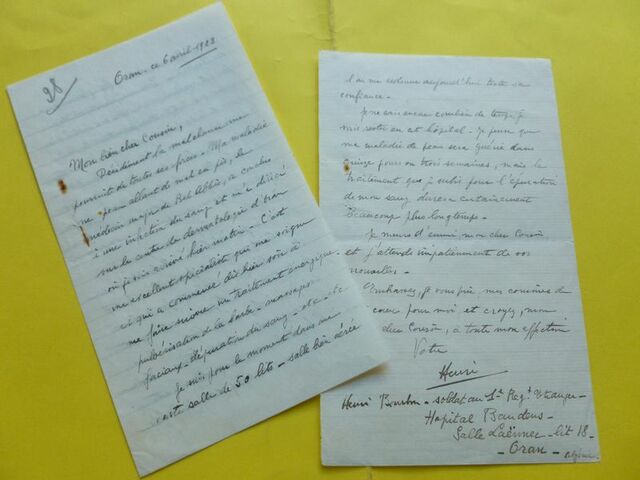 28
Oran, ce 6 avril 1923
Mon bien cher Cousin,
Décidément la malchance me
poursuit de toutes ses forces. Ma maladie
de peau allant de mal en pis, le
médecin major de Bel Abbès, a conclu
à une infection du sang et m'a dirigé
sur le centre de dermatologie d'Oran
où je suis arrivé hier matin. C'est
un excellent spécialiste qui me soigne
et qui a commencé dès hier soir à
me faire suivre un traitement énergique
pulvérisation de la barbe - massages
faciaux - dépuration du sang - etc - etc
Je suis, pour le moment dans une
vaste salle de 50 lits - salle bien aérée
l'on me redonne aujourd'hui toute sa
confiance.
Je ne sais encore combien de temps je
vais rester en cet hôpital. Je pense que
ma maladie de peau sera guérie dans
quinze jours ou trois semaines, mais le
traitement que je subis pour l'épuration
de mon sang durera certainement
beaucoup plus longtemps.
Je meurs d'ennui mon cher Cousin
et j'attends impatiemment de vos
nouvelles.
Embrassez, je vous prie, mes cousines de
tout cœur pour moi et croyez, mon
cher Cousin, à toute mon affection
Votre
Henri
Henri - soldat au 1er Régt Etranger -
Hôpital Baudens
Salle Laënnec - lit 18 -
- Oran - Algérie.